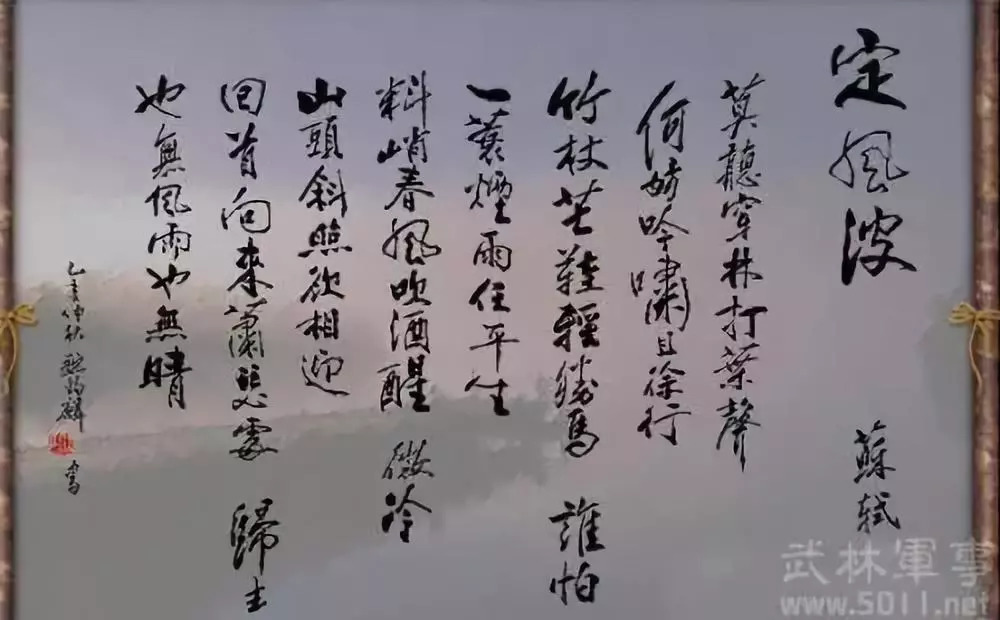 定風波
蘇軾
莫聽穿林打葉聲
何妨吟嘯且徐行
竹杖芒鞋輕勝馬 誰怕
一蓑煙雨任平生
料峭春風吹酒醒 微冷
山頭斜照卻相迎
回首向來蕭瑟處 歸去
也無風雨也無晴
乙亥仲秋 麟 寫
武林軍事
www.5011.net